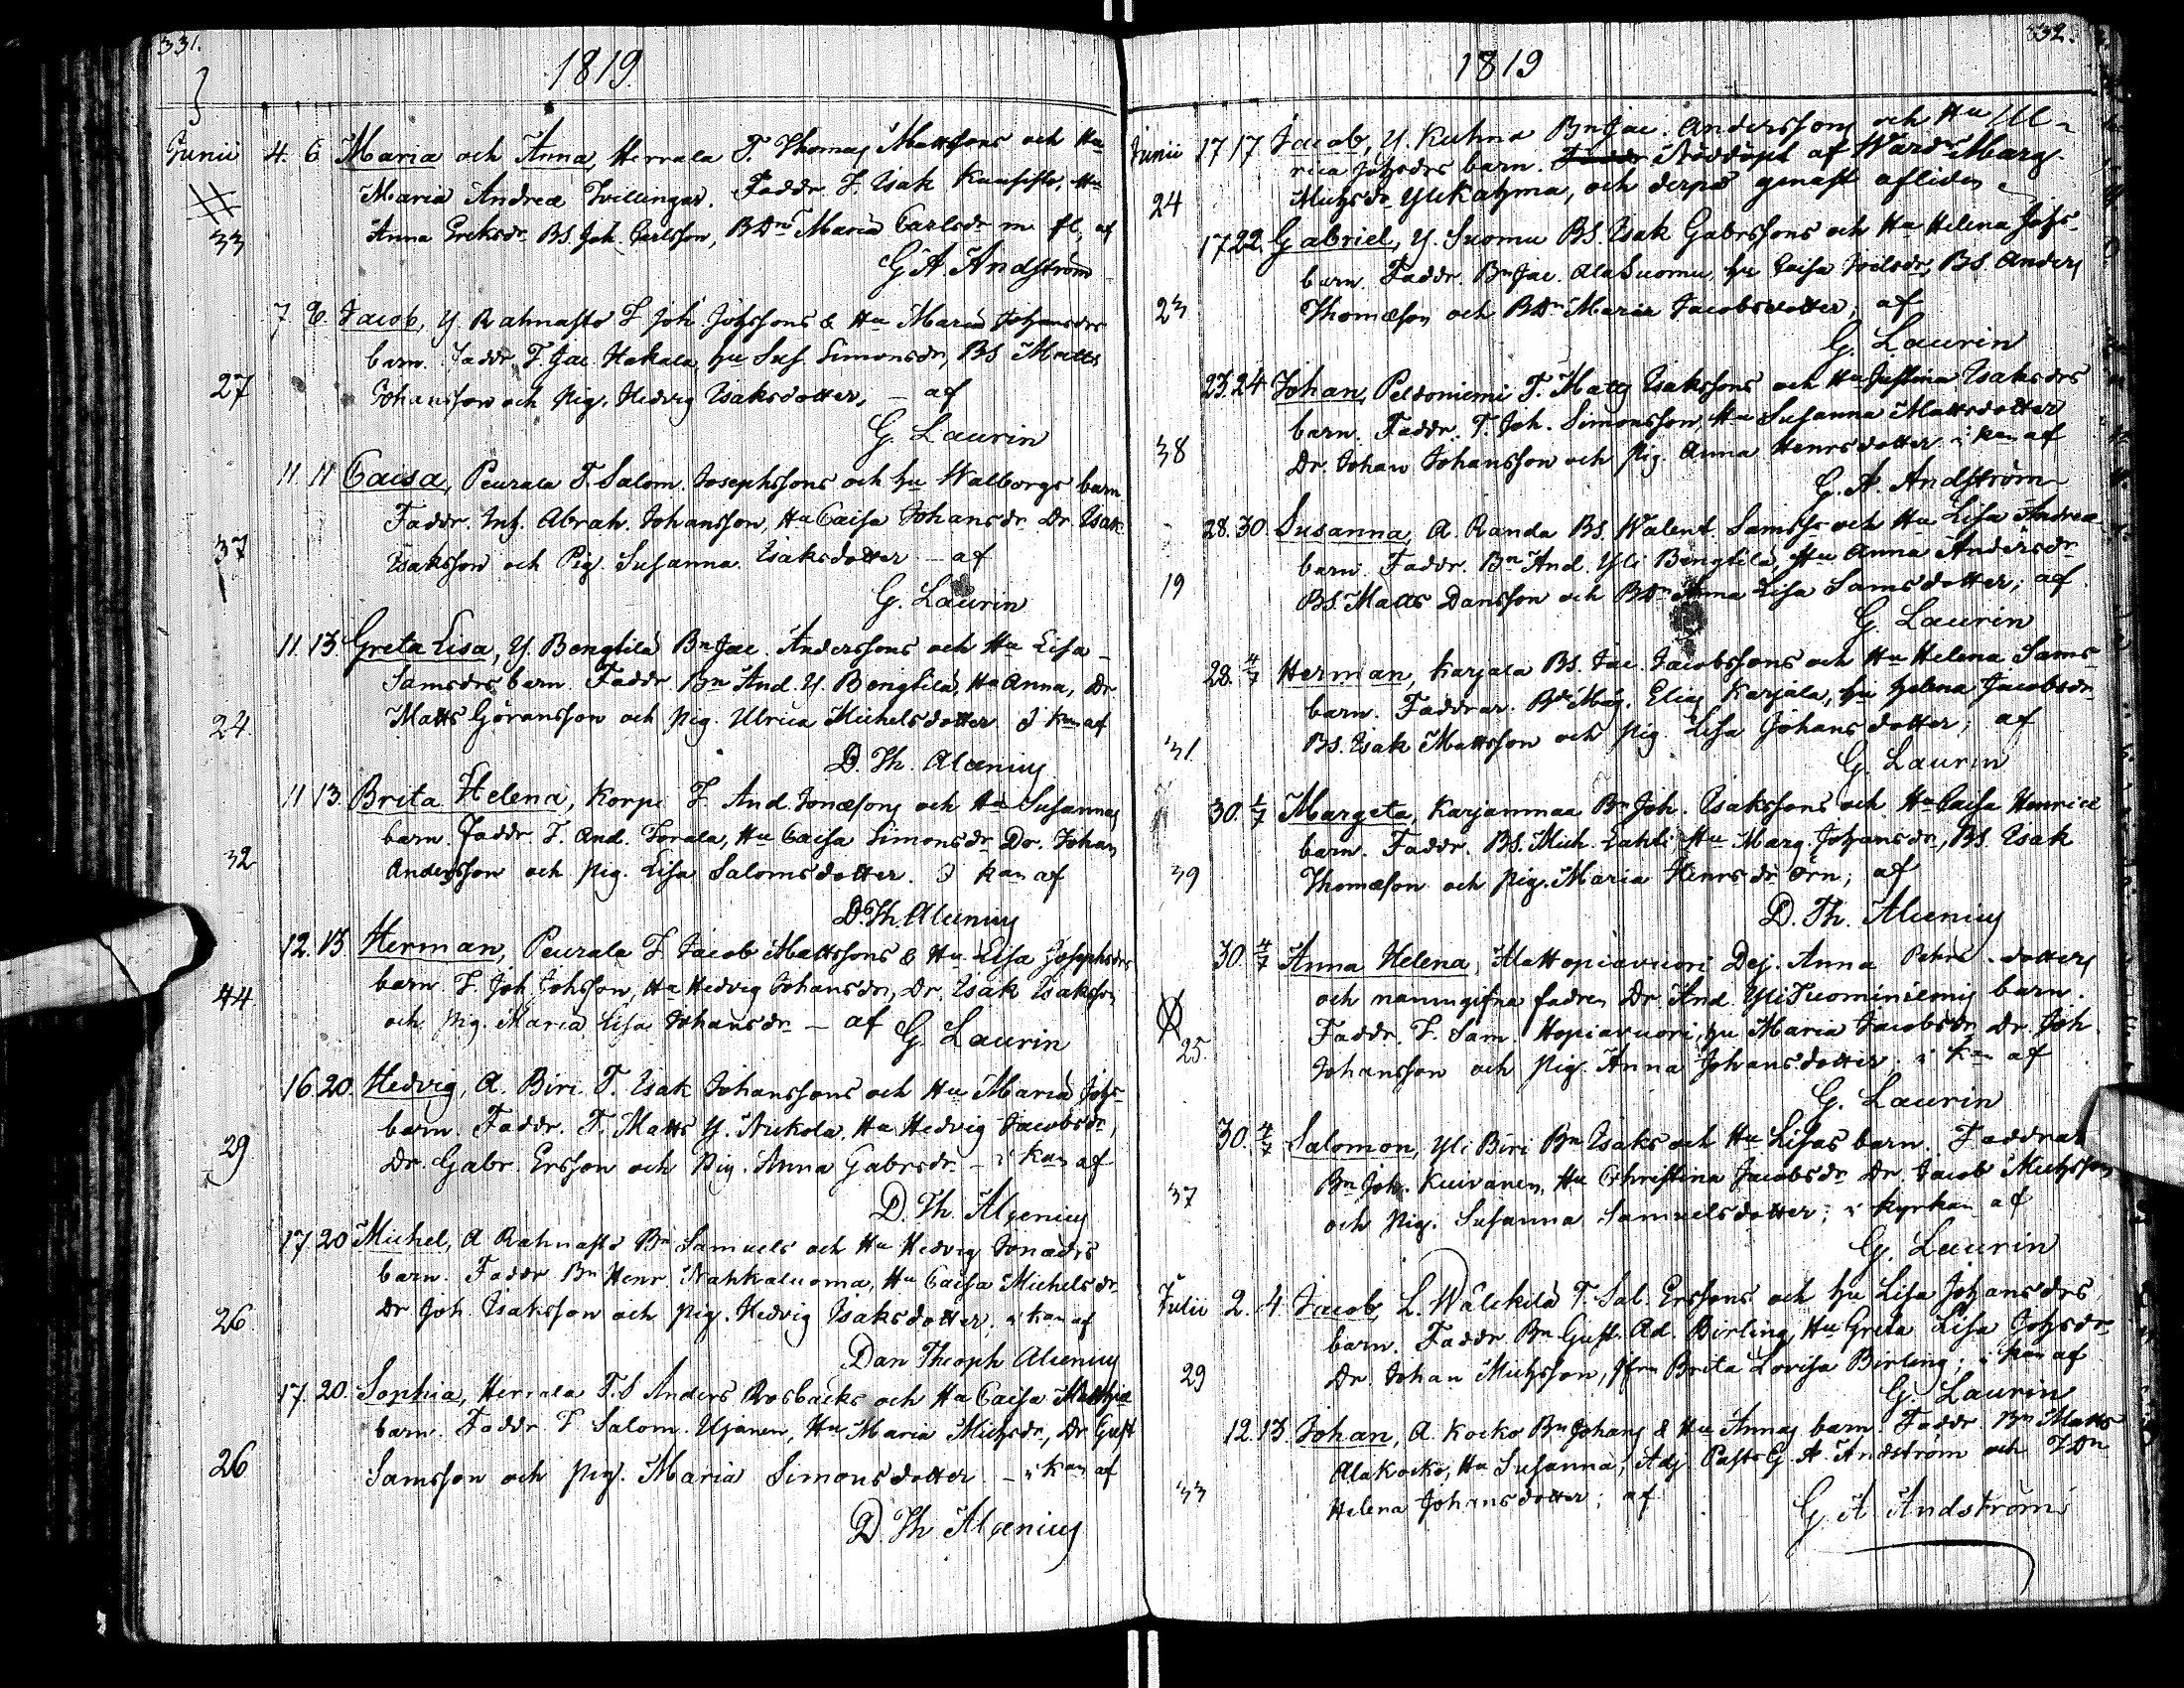 331.
1819.
Junii 4. 6 Maria och Anna, Herrala T. Thomas Mattssons och Hu
Maria Andreæ Tvillingar. Faddr. T. Isak Hu
33
Anna Ericksdr. BS. Joh. Carlsson, BDr Maria Carlsdr m. fl. af
G A Andström
7. 8. Jacob, Y. Rahnasto T Joh Johssons & Hu Maria Johansdrs
barn. Faddr. T. Jac. Hakala, hu Sus Simonsdr, BS Matts
27
Johansson och Pig. Hedvig Isaksdotter, – af
G. Laurin
11. 11 Caisa, Peurala T. Salom. Josephssons och hu Walborgs barn
Faddr. Inh. Abrah. Johansson, Hu Caisa Johansdr. Dr. Isak
37
Isaksson och Pig. Susanna Isaksdotter – af
G. Laurin
11. 13 Greta Lisa, Y. Bengtilä Bn Jac. Anderssons och Hu Lisa
Samsdrs barn. Faddr. Bn And. Y. Bengtilä, Hu Anna, Dr
24.
Matts Göransson och Pig. Ulrica Michelsdotter. I kan af
D. Th. Alcenius
11 13. Brita Helena, Korpi T. And. Jonæsons och Hu Susannas
barn. Faddr. T. And. Torala, Hu Caisa Simonsdr Dr. Johan
32
Andersson och Pig. Lisa Salomsdotter. I kan af
D. Th. Alcenius
12. 13 Herman, Peurala T. Jacob Mattssons & Hu Lisa Josephsdrs
barn T. Joh Johsson, Hu Hedvig Johansdr, Dr. Isak Isaksson
44
och Pig. Maria Lisa Johansdr – af G. Laurin
16. 20. Hedvig, A. Biri T. Isak Johanssons och Hu Maria Johs-
barn. Faddr. T. Matts Y. Nickola, Hu Hedvig Jacobsdr,
29
Dr. Gabr. Ersson och Pig. Anna Gabrsdr – i kan af
D. Th. Alcenius
17 20 Michel, A Rahnasto Bn Samuels och Hu Hedvig Jonædrs
barn. Faddr Bn Henr. Nahkaluoma, Hu Caisa Michelsdr,
Dr Joh. Isaksson och Pig. Hedvig Isaksdotter, i kan af
26
Dan Theoph Alcenius
17. 20. Sophia, Herrala T.S Anders Rosbacks och Hu Caisa Matthiæ
barn. Faddr. T Salom. Ujanen, Hu Maria Michsdr, Dr Gust
26
Samsson och Pig. Maria Simonsdotter – i kan af
D. Th Alcenius
332.
1819
Junii 17 17 Jacob, Y. Kuhna Bn Jac. Anderssons och Hu Ul-
rica Johsdrs barn. Nöddöpt af Wärdn Marg.
24
Michsdr Ylikahma, och derpå genast afliden
17 22 Gabriel, Y. Suomu BS. Isak Gabrssons och Hu Helena Johs-
barn. Faddr. Bn Jac. AlaSuomu, hu Caisa Joelsdr, BS. Anders
23
Thomæson och BDr Maria Jacobsdotter; af
G. Laurin
23. 24 Johan, Peldoniemi T. Matts Isakssons och Hu Justina Isaksdrs
barn. Faddr. T. Joh. Simonsson, Hu Susanna Mattsdotter
38
Dr. Johan Johansson och Pig. Anna Henrsdotter i kan af
G. A. Andström
28. 30. Susanna, A. Randa BS. Walent. Samss och Hu Lisa Andreæ
barn. Faddr. Bn And. Yli Bengtilä, Hu Anna Andersdr
19
BS. Matts Dansson och BDr Anna Lisa Samsdotter; af
G. Laurin
28. 4/7 Herman, Karjala BS. Jac. Jacobssons och Hu Helena Sams-
barn. Faddrar. Bn Mag. Elias Karjala, hu Helena Jacobsdr
31.
BS. Isak Mattsson och Pig. Lisa Johansdotter; af
G. Laurin
30. 1/7 Margeta, Karjanmaa Bn Joh. Isakssons och Hu Caisa Henrici
barn. Faddr. BS. Mich. Lahti Hu Marg. Johansdr, BS. Isak
39
Thomæson och Pig. Maria Henrsdr Örn; af
D. Th. Alcenius
30. 4/7 Anna Helena, Mattopiavuori Dej. Anna Petrs-dotters
och namngifna fadren Dr. And. YliTuominiemis barn.
25
Faddr. T. Sam. Hopiavuori, hu Maria Jacobsdr Dr. Joh
Johansson och Pig. Anna Johansdotter. i kan af
G. Laurin
30. 4/7 Salomon, Yli Biri Bn Isaks och Hu Lisas barn. Faddrar
Bn Joh. Kuivanen, Hu Christina Jacobsdr Dr. Jacob Michsson
37
och Pig. Susanna Samuelsdotter; i kyrkan af
G. Laurin
Julii 2. 4. Jacob, L. Wälckilä T. Sal. Erssons och hu Lisa Johansdrs
barn. Faddr Bn Gust. Ad. Birling, Hu Greta Lisa Johsdr
29
Dr. Johan Michsson, Jfrn Brita Lovisa Birling; i kan af
G. Laurin
12. 13. Johan, A. Kocko Bn Johans & Hu Annas barn. Faddr. Bn Matts
AlaKocko, Hu Susanna, Adj. Past. G. A. Andström och TDn
33
Helena Johansdotter; af
G A Andström